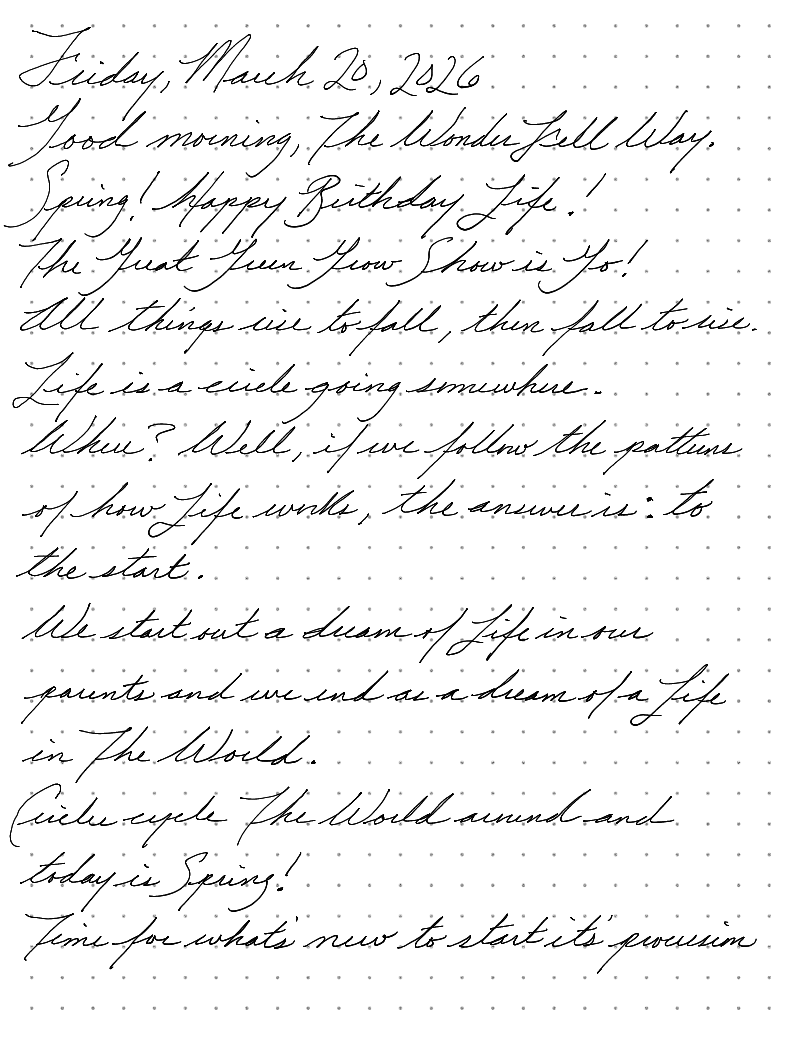 Friday, March 20, 2026
Good morning, The Wonder Fell Way.
Spring! Happy Birthday Life!
The Great Green Grow Show is Go!
All things rise to fall, then fall to rise.
Life is a circle going somewhere.
Where? Well, if we follow the patterns
of how Life works, the answer is: to
the start.
We start out a dream of Life in our
parents and we end as a dream of a Life
in The World.
Circles cycle The World around and
today is Spring!
Time for what's new to start it's